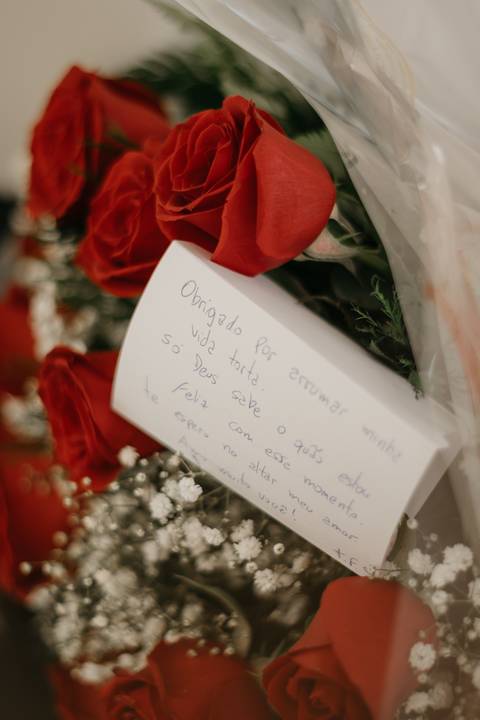 Obrigado Por arrumar minha
vida torta.
só Deus sabe o quão estou
Feliz com esse momento.
te espero no altar meu amor
muito você!